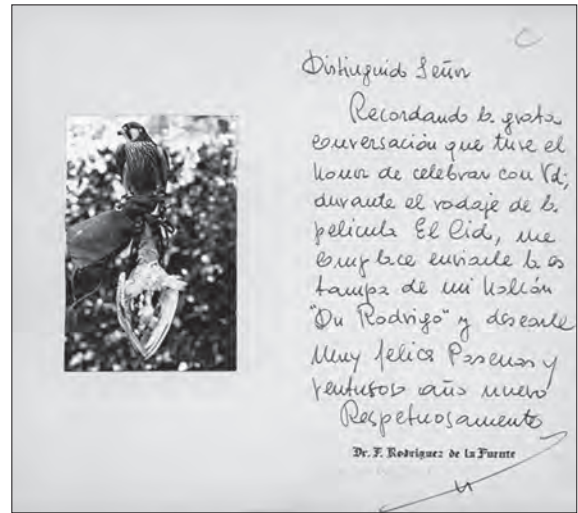 Distinguido Señor
Recordando la grata
conversación que tuve el
honor de celebrar con Vd;
durante el rodaje de la
pelicula El Cid, me
complace enviarle la es
tampa de mi halcón
"Dn Rodrigo" y desearle
Muy felices Pascuas y
venturoso año nuevo
Respetuosamente
Dr. F. Rodriguez de la Fuente